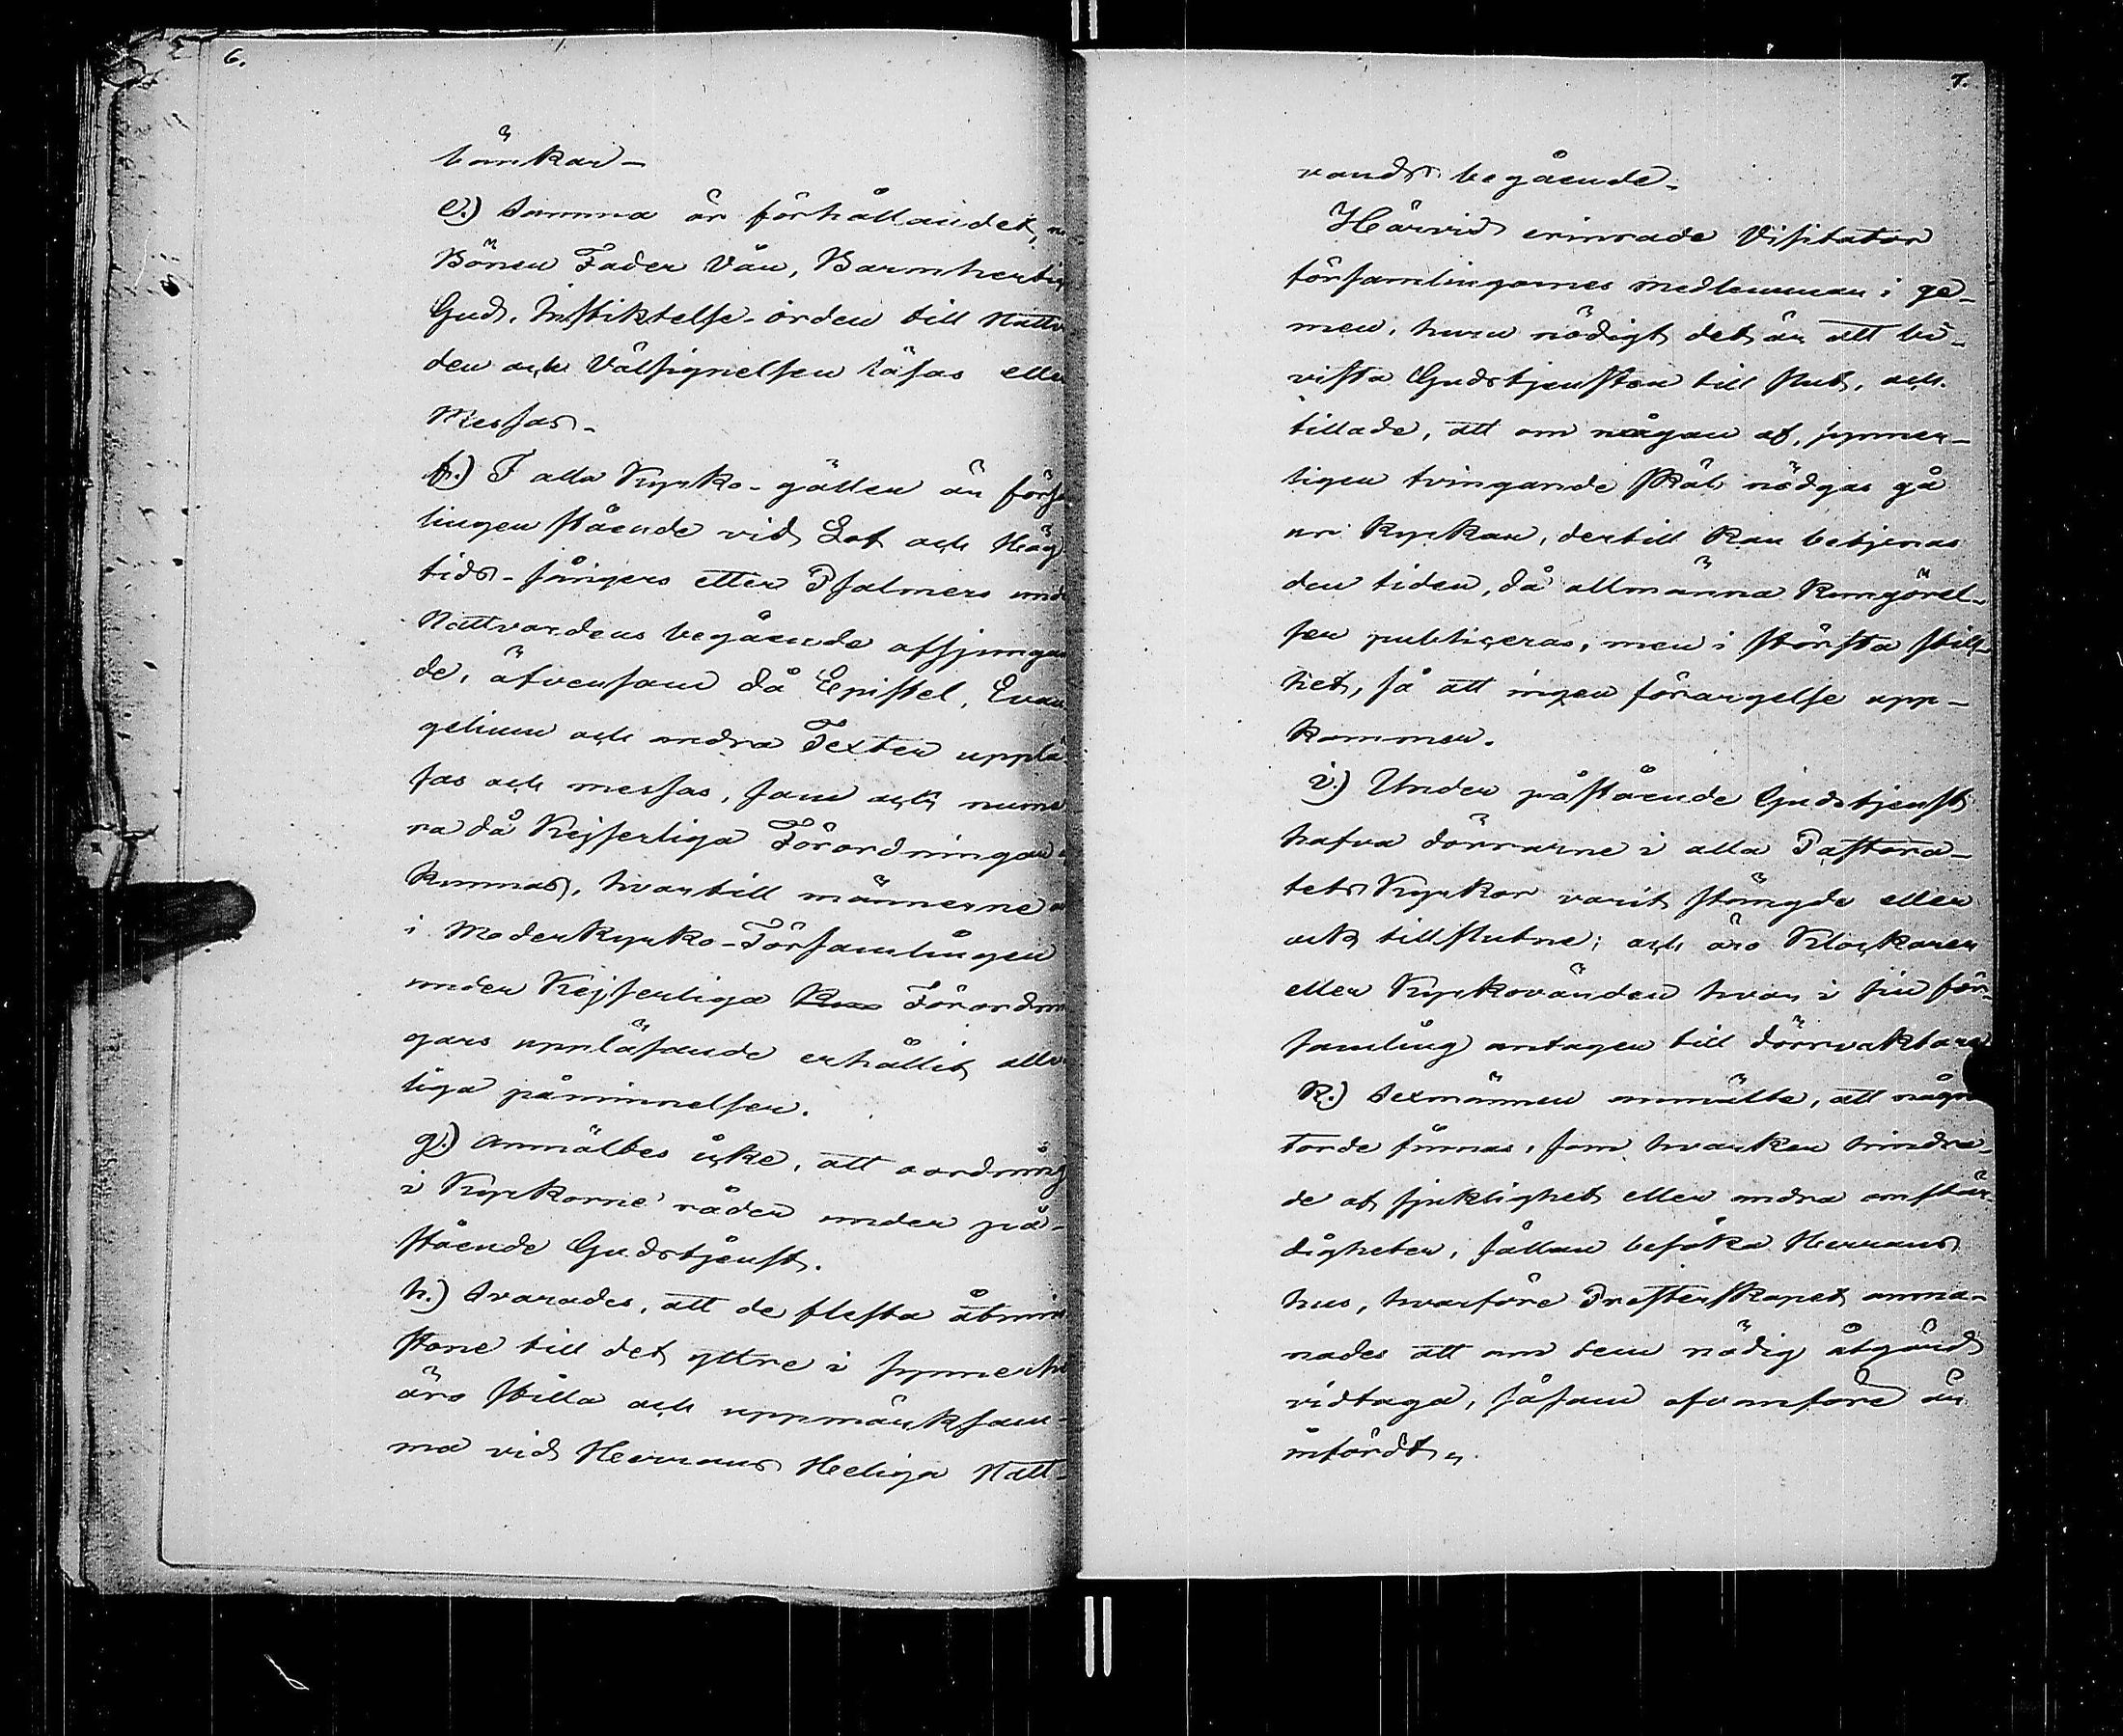 6.
bänkar-
e.) Samma är förhållandet, 
Bönen Fader Vår, Barmhertig
Gud, Instiktelse-orden till Nattv
den och Välsignelsen läsas eller
Messas-
f.) I alla Kyrko-gällen är försa
lingen stående vid Lof och Hög
tids-sångers eller Psalmers unde
Nattvardens begående afsjungan
de, äfvensom då Epistel, Evan
gelium och andra Texter upplä
sas och messas, som ock nume
ra då Kejserliga Förordningar
kunnas, hvartill männerne
i Moderkyrko-Församlingen
under Kejserliga Förordnin
gars uppläsande erhållit allv
liga påminnelser.
g.) Anmältes icke, att oordning
i Kyrkorne råder under på-
stående Gudstjenst.
h.) Svarades, att de flesta åtmin
stone till det yttre i synnerhe
äro stilla och uppmärksam-
ma vid Herrans Heliga Natt-
7.
vards begående.
Härvid erinrade Visitator
församlingarnes medlemmar i ge-
men, huru nödigt det är att bi-
vista Gudstjensten till slut, och
tillade, att om någon af, synner-
ligen tvingande skäl nödgas gå
ur kyrkan, dertill kan betjenas
den tiden, då allmänna kungörel-
ser publiceras, men i största still-
het, så att ingen förargelse upp-
kommer.
i.) Under påstående Gudstjenst
hafva dörrarne i alla Pastora-
tets Kyrkor varit stängde eller
ock tillslutne; och äro Klockaren
eller Kyrkovärden hvar i sin för-
samling antagen till dörrvaktare
k.) Sexmännen anmälte, att några
torde finnas, som hvarken hindra-
de af sjuklighet eller andra omstän-
digheter, sällan besöka Herrans
hus, hvarföre Presterskapet anma-
nades att om dem nödig åtgärd
vidtaga, såsom ofvanföre är
infördt.